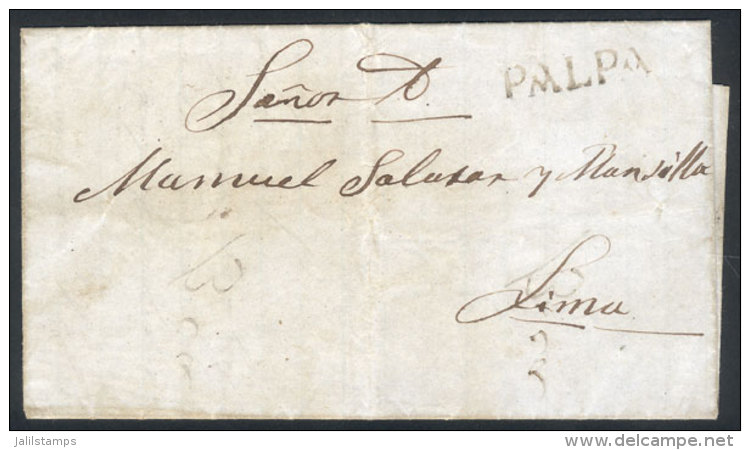 Señor D.
PALPA
Manuel Salasar y Mansilla
Lima
jalilstamps
delcampe.net